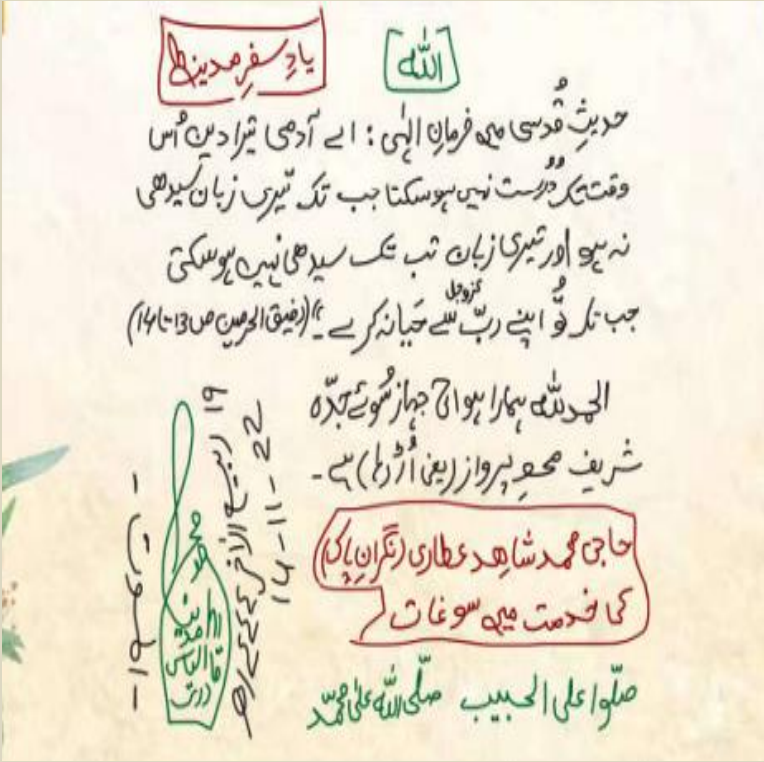 اللہ
یادِ سفرِ مدینہ
حدیثِ قُدسی میں فرمانِ الٰہی : اے آدمی تیرا دین اُس
وقت تک دُرُست نہیں ہوسکتا جب تک تیری زبان سیدھی
نہ ہو اور تیری زبان تب تک سیدھی نہیں ہوسکتی
جب تک تُو اپنے ربّ عزوجل سے حَیا نہ کرے ۔" (رفیق الحرمین ص 13 تا 14)
الحمدللہ ہمارا ہوائی جہاز سُوئے جدّہ
شریف محوِ پرواز (یعنی اُڑ رہا) ہے ۔
حاجی محمد شاھد عطاری (نگرانِ پاک)
کی خدمت میں سوغات
صلّوا علی الحبیب صلّی اللہ علیٰ محمّد
19 ربیع الآخر
14-11-22